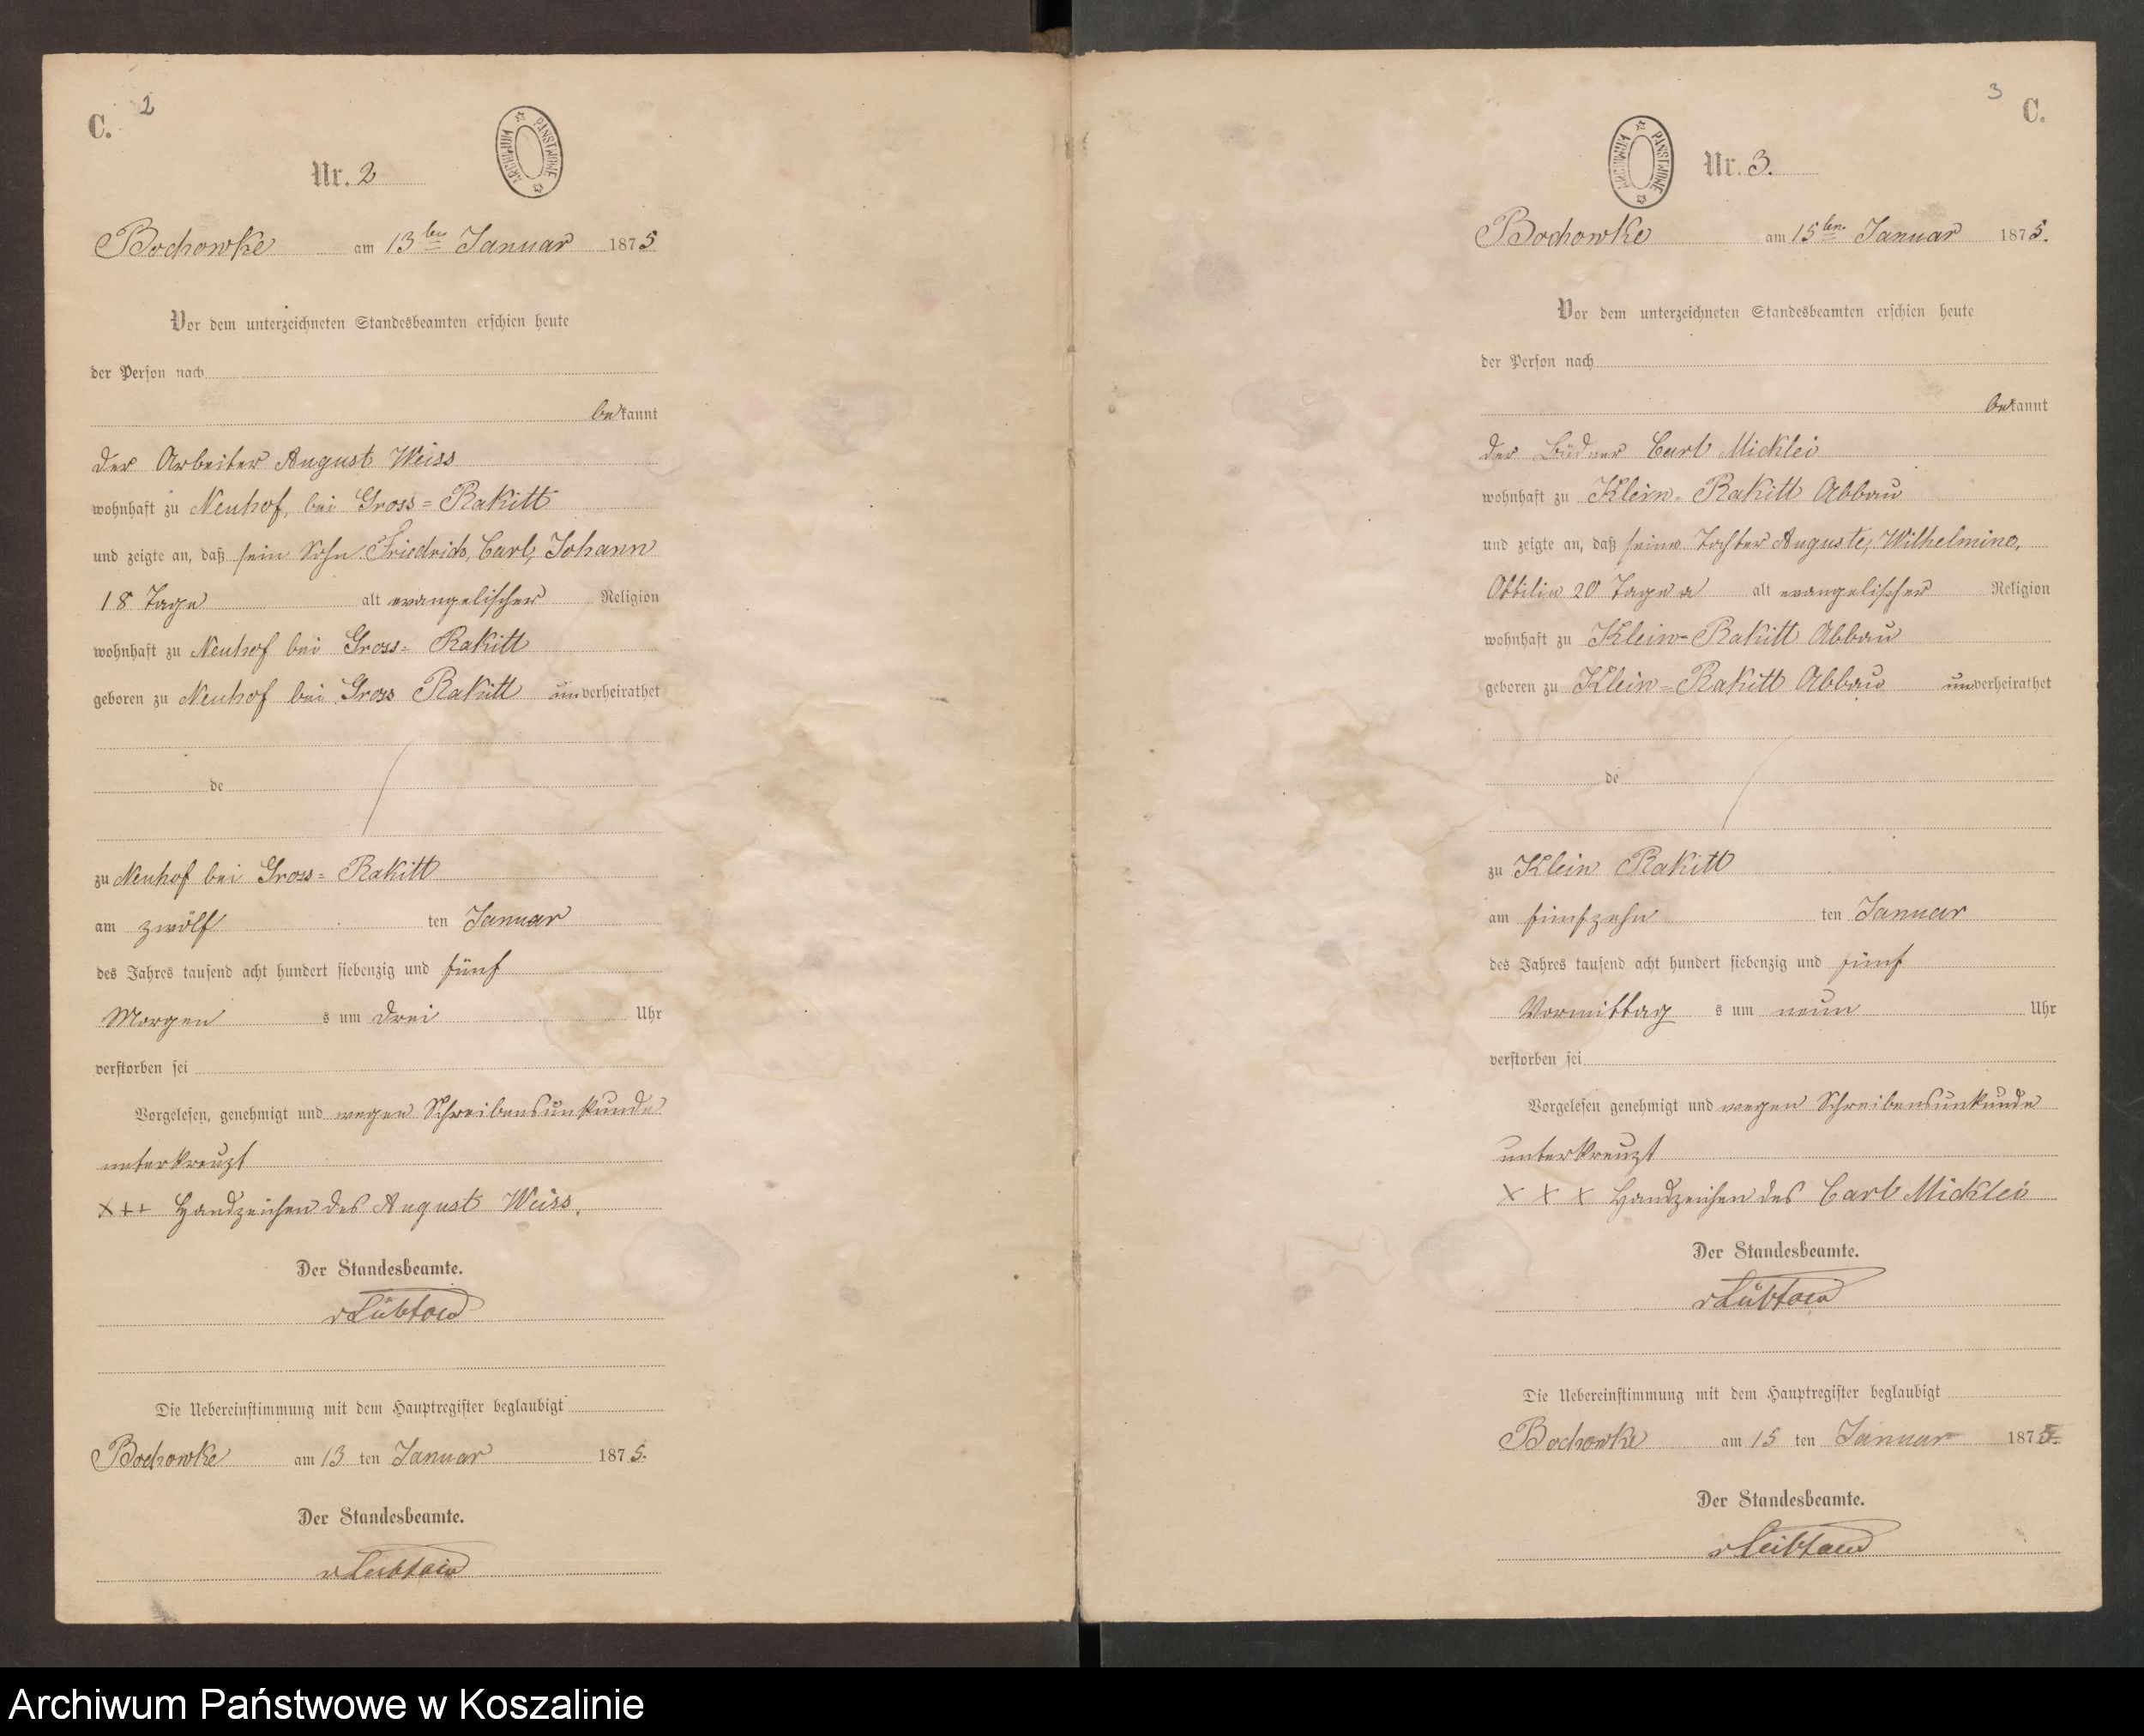 C. 2
Nr. 2
ARCHIWUM PAŃSTWOWE
Bochowke am 13ten Januar 1875
Vor dem unterzeichneten Standesbeamten erschien heute
der Person nach
bekannt
der Arbeiter August Weiss
wohnhaft zu Neuhof, bei Gross=Rakitt
und zeigte an, daß sein Sohn Friedrich, Carl, Johann
18 Tage alt evangelischer Religion
wohnhaft zu Neuhof bei Gross= Rakitt
geboren zu Neuhof bei Gross Rakitt unverheirathet
de
zu Neuhof bei Gross= Rakitt
am zwölf ten Januar
des Jahres tausend acht hundert siebenzig und fünf
Morgen s um drei Uhr
verstorben sei
Vorgelesen, genehmigt und wegen Schreibensunkunde
unterkreuzt
x++ Handzeichen des August Weiss.
Der Standesbeamte.
vLübtow
Die Uebereinstimmung mit dem Hauptregister beglaubigt
Bochowke am 13 ten Januar 1875.
Der Standesbeamte.
vLübtow
3 C.
ARCHIWUM PAŃSTWOWE
Nr. 3.
Bochowke am 15ten Januar 1875.
Vor dem unterzeichneten Standesbeamten erschien heute
der Person nach
bekannt
der Büdner Carl Micklei
wohnhaft zu Klein=Rakitt Abbau
und zeigte an, daß seine Tochter Auguste, Wilhelmine,
20 Tage alt evangelischer Religion
wohnhaft zu Klein=Rakitt Abbau
geboren zu Klein=Rakitt Abbau unverheirathet
de
zu Klein Rakitt
am fünfzehn ten Januar
des Jahres tausend acht hundert siebenzig und fünf
Vormittag s um neun Uhr
verstorben sei
Vorgelesen genehmigt und wegen Schreibensunkunde
unterkreuzt
x x x Handzeichen des Carl Micklei
Der Standesbeamte.
vLübtow
Die Uebereinstimmung mit dem Hauptregister beglaubigt
Bochowke am 15 ten Januar 1875.
Der Standesbeamte.
vLübtow
Archiwum Państwowe w Koszalinie